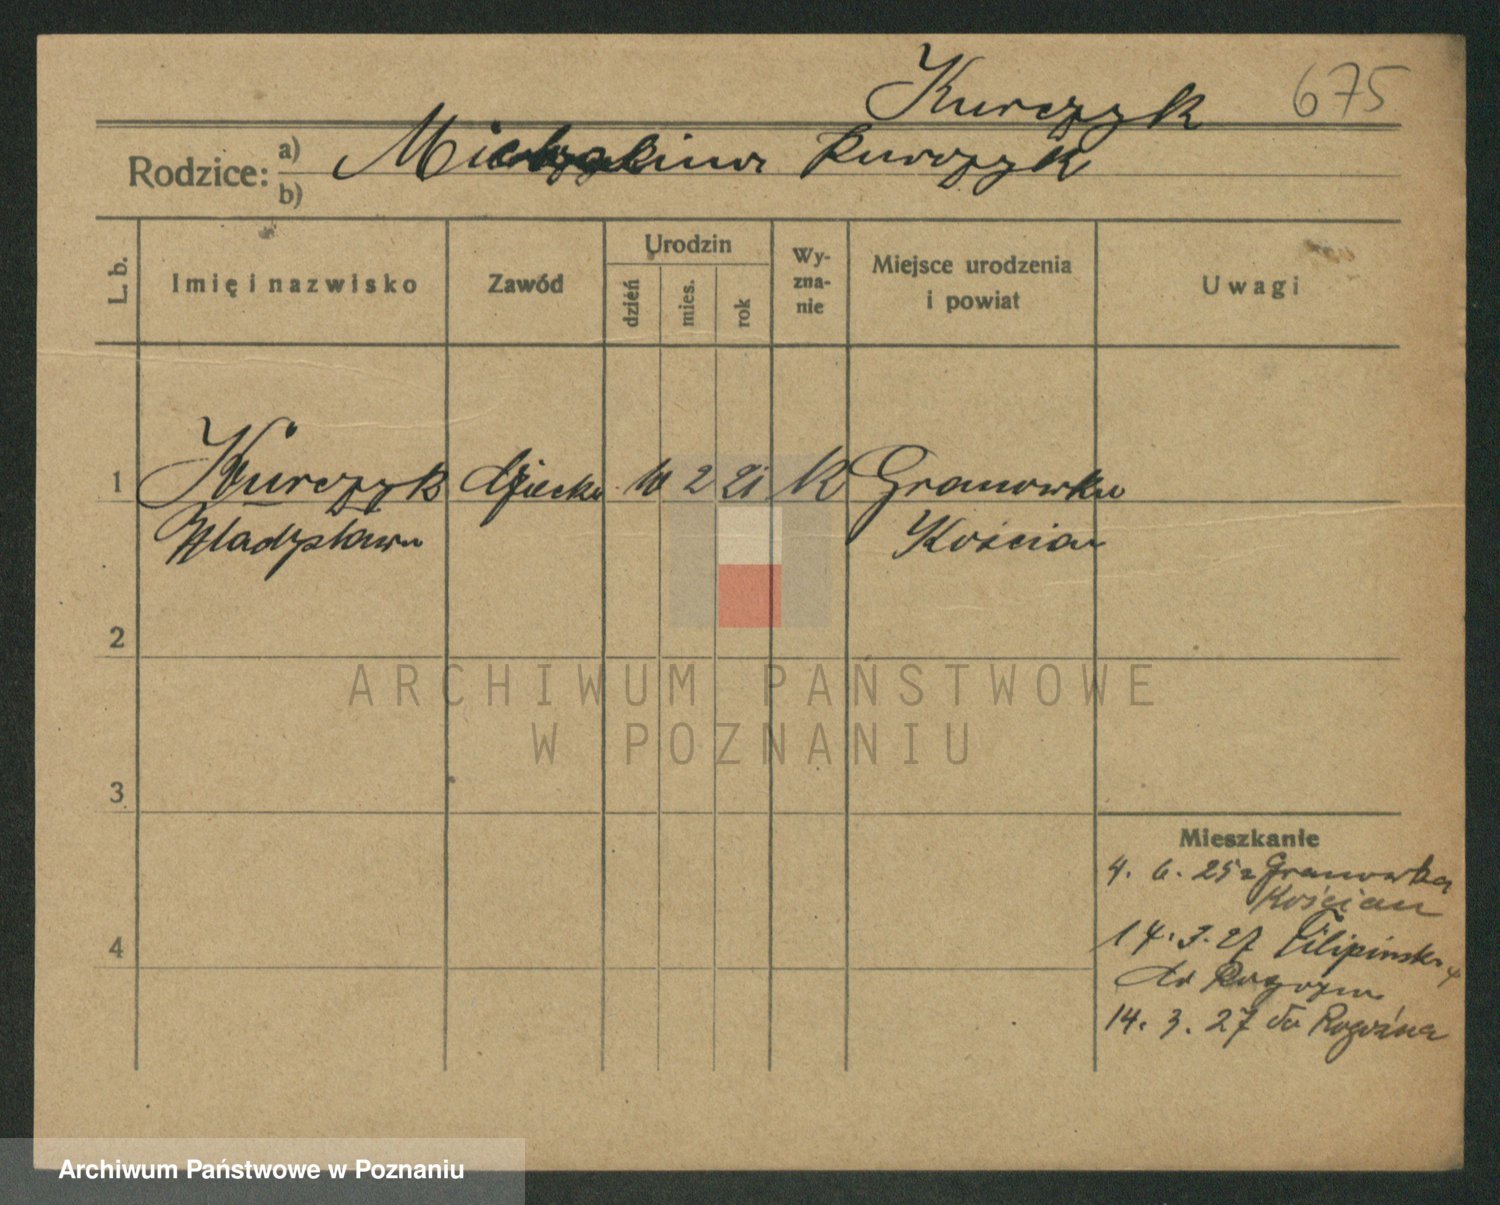 Kurczyk 675
Rodzice: a) Michalina Kurczyk
b)
L. b. Imię i nazwisko Zawód Urodzin dzień mies. rok Wy-zna-nie Miejsce urodzenia i powiat Uwagi
1 Kurczyk dziecko 10 2 21 K Granowko
Władysława Kościan
2
ARCHIWUM PAŃSTWOWE
W POZNANIU
3
Mieszkanie
4. 6. 25 z Granówka
Kościan
4
14. 3. 27 Filipińska 4
do Rogozna
14. 3. 27 do Rogoźna
Archiwum Państwowe w Poznaniu